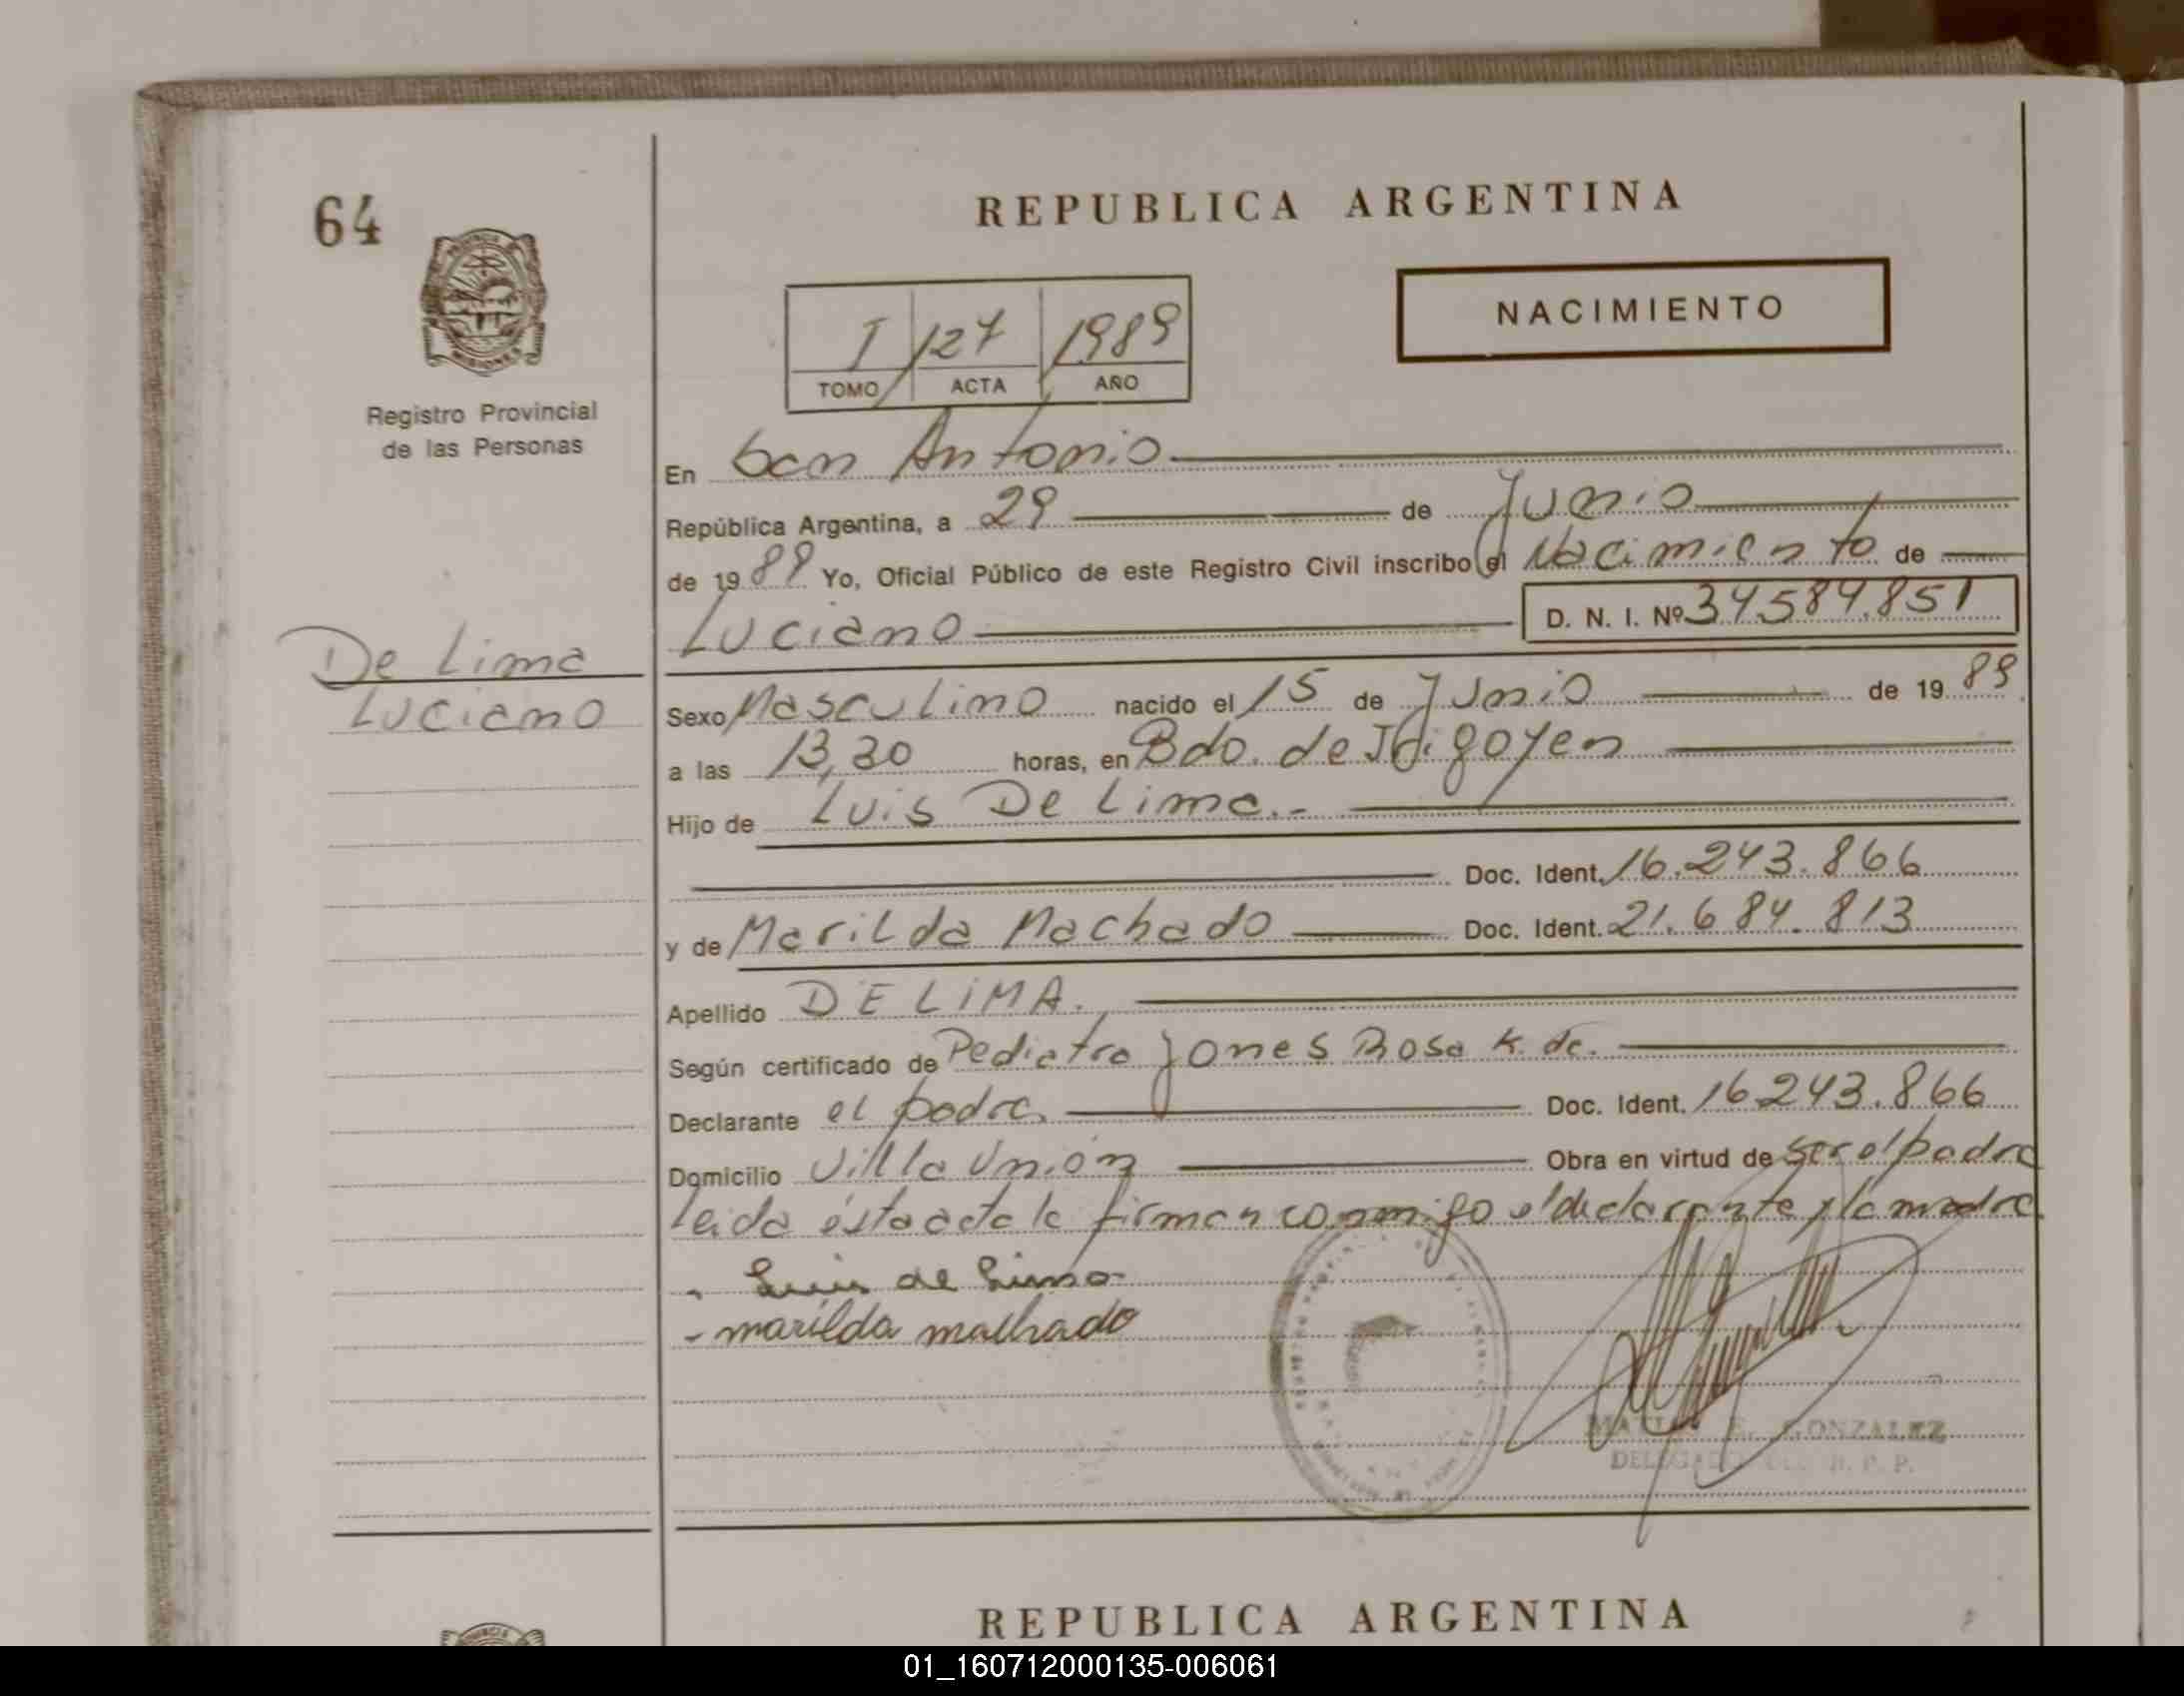 64
REPUBLICA ARGENTINA
NACIMIENTO
I 127 1989
TOMO ACTA AÑO
Registro Provincial
de las Personas
En San Antonio
República Argentina, a 29 de Junio
de 1989 Yo, Oficial Público de este Registro Civil inscribo el Nacimiento de
Luciano D. N. I. Nº 34.584.851
De Lima
Luciano
Sexo Masculino nacido el 15 de Junio de 1989
a las 13,30 horas, en Bdo. de Irigoyen
Hijo de Luis De Lima.-
Doc. Ident. 16.243.866
y de Marilda Machado Doc. Ident. 21.684.813
Apellido DE LIMA.
Según certificado de Pediatra Jones Rosa K. de.
Declarante el padre. Doc. Ident. 16.243.866
Domicilio Villa Unión Obra en virtud de ser el padre
leida ésta acta la firman conmigo el declarante y la madre.
- Luis de Lima
- marilda malhado
E. GONZALEZ
R. P. P.
REPUBLICA ARGENTINA
01_160712000135-006061